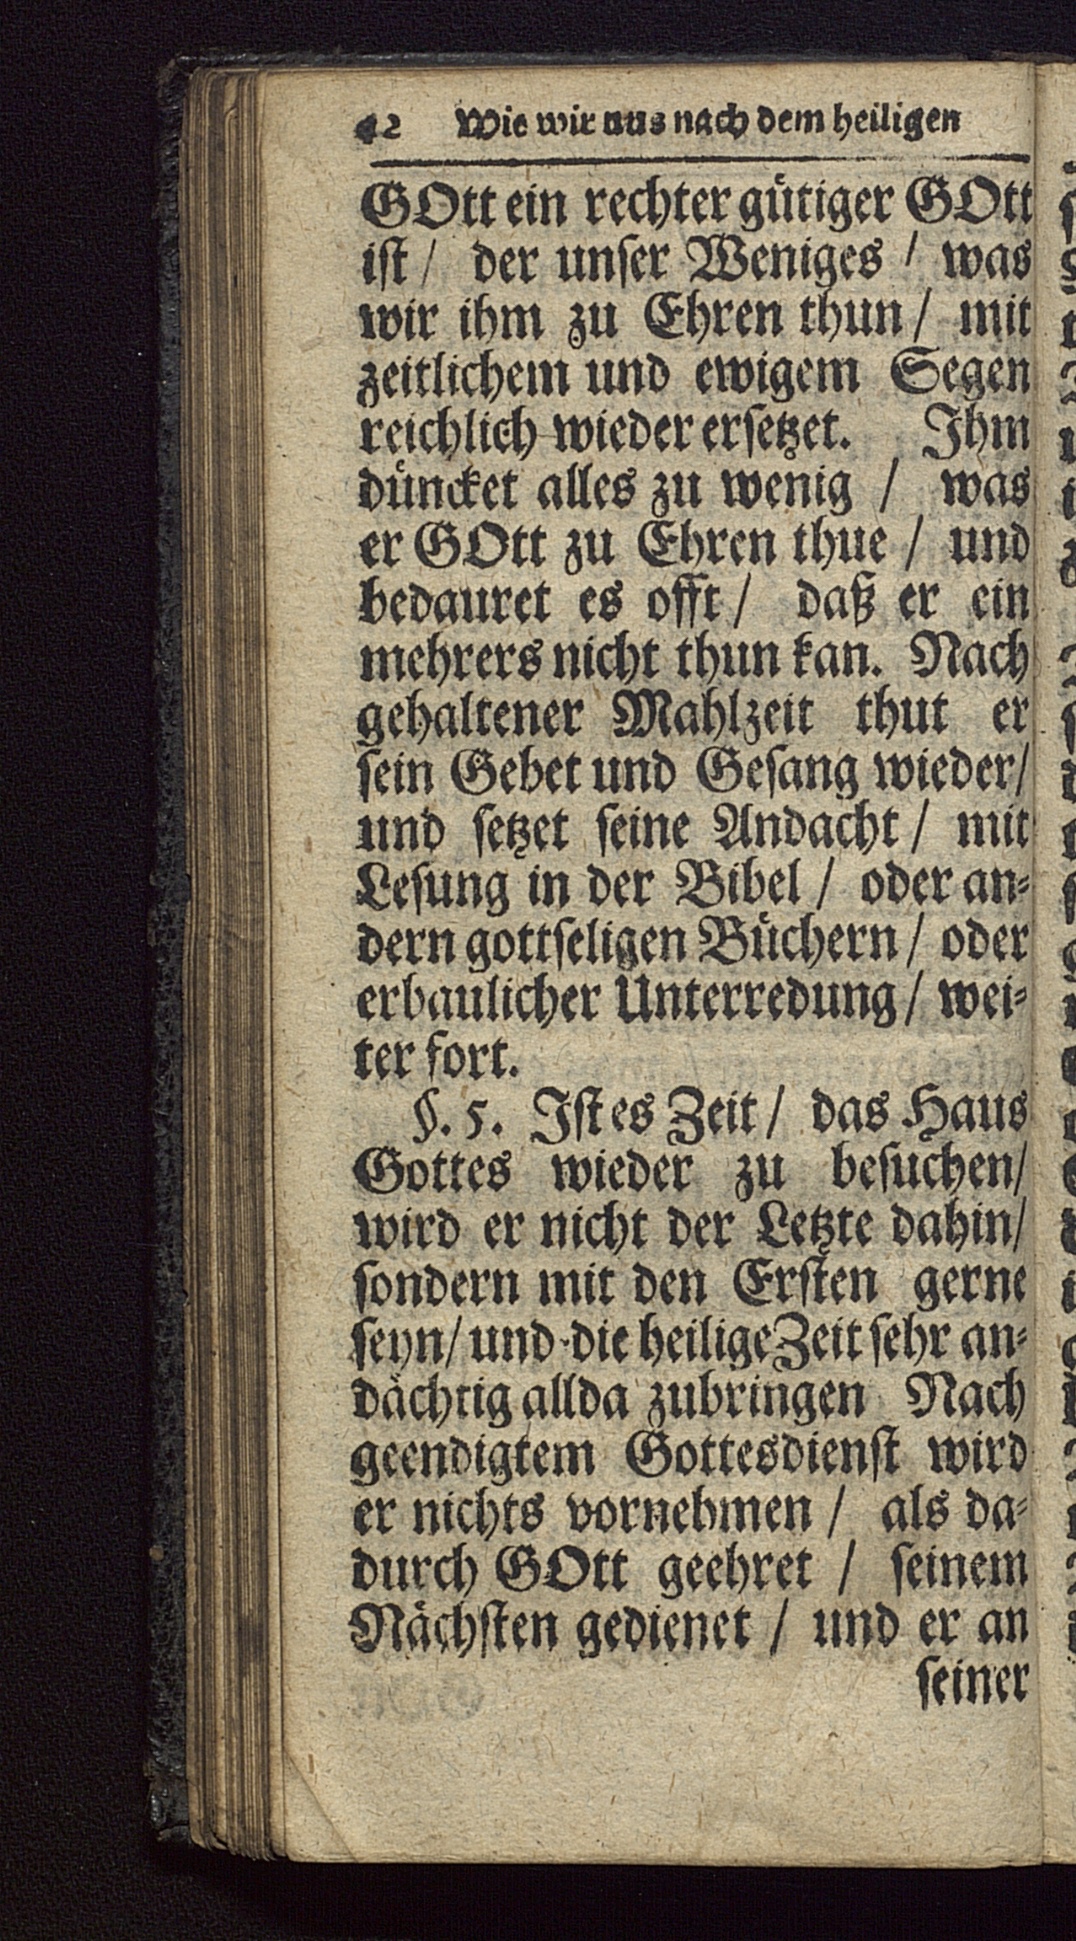 42 Wie wir uns nach dem heiligen
GOtt ein rechter gütiger GOtt
ist / der unser Weniges / was
wir ihm zu Ehren thun / mit
zeitlichem und ewigem Segen
reichlich wieder ersetzet. Ihm
düncket alles zu wenig / was
er GOtt zu Ehren thue / und
bedauret es offt / daß er ein
mehrers nicht thun kan. Nach
gehaltener Mahlzeit thut er
sein Gebet und Gesang wieder /
und setzet seine Andacht / mit
Lesung in der Bibel / oder an-
dern gottseligen Büchern / oder
erbaulicher Unterredung / wei-
ter fort.
§. 5. Ist es Zeit / das Haus
Gottes wieder zu besuchen /
wird er nicht der Letzte dahin /
sondern mit den Ersten gerne
seyn / und die heilige Zeit sehr an-
dächtig allda zubringen Nach
geendigtem Gottesdienst wird
er nichts vornehmen / als da-
durch GOtt geehret / seinem
Nächsten gedienet / und er an
seiner